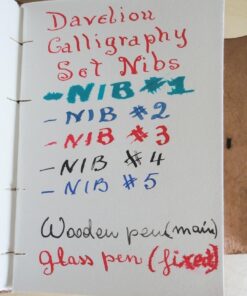 Davelion
Calligraphy
Set Nibs
- NIB #1
- NIB #2
- NIB #3
- NIB #4
- NIB #5
Wooden pen (main)
Glass pen (fixed)